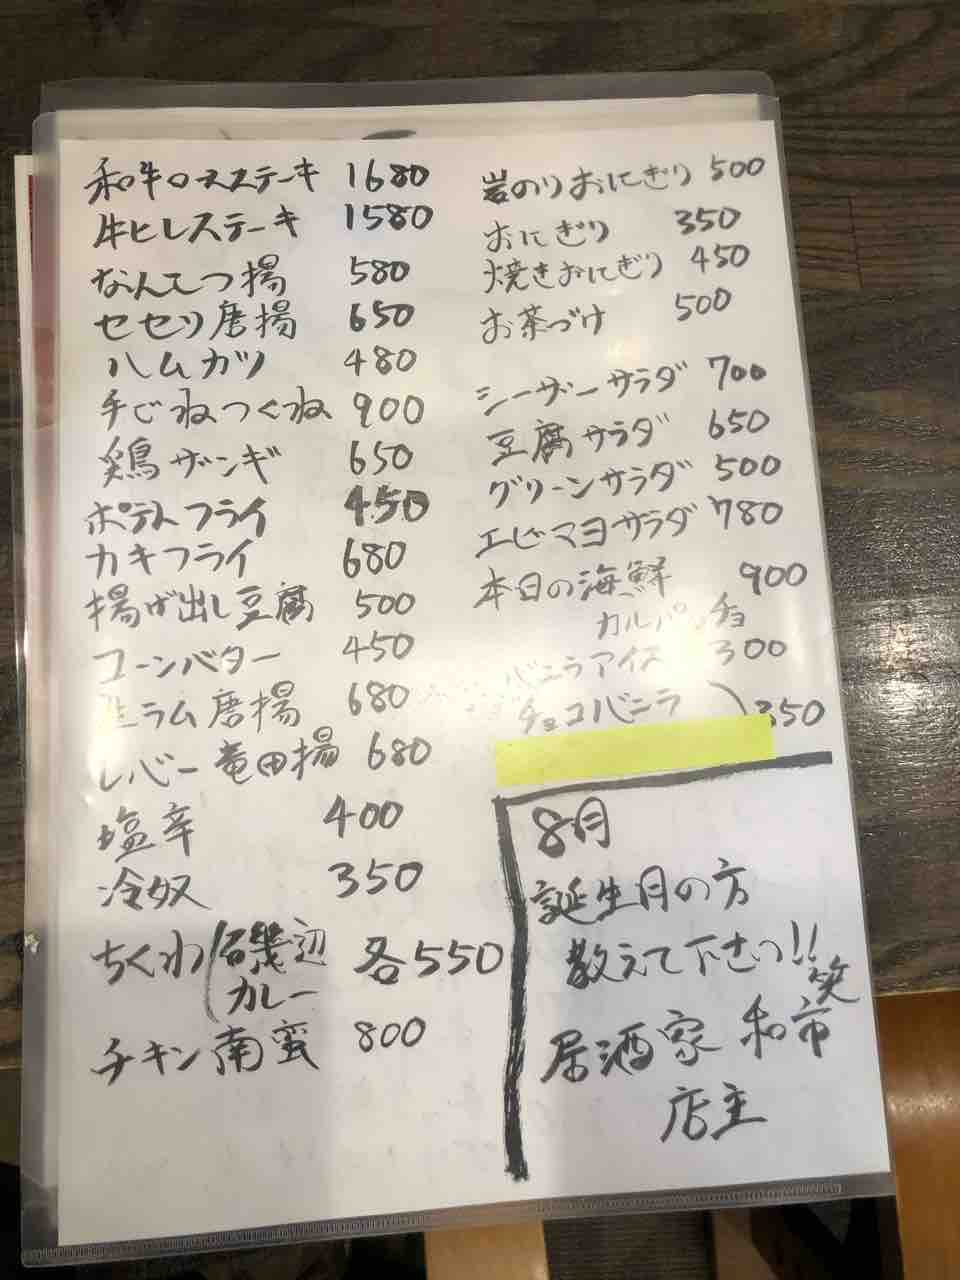 和牛ロスステーキ 1680
牛ヒレステーキ 1580
なんてつ揚 580
セセリ唐揚 650
ハムカツ 480
手じねつくね 900
鶏ザンギ 650
ポテトフライ 450
カキフライ 680
揚げ出し豆腐 500
コーンバター 450
生ラム唐揚 680
レバー竜田揚 680
塩辛 400
冷奴 350
ちくわ(磯辺 各550
カレー
チキン南蛮 800
岩のりおにぎり 500
おにぎり 350
焼きおにぎり 450
お茶づけ 500
シーザーサラダ 700
豆腐サラダ 650
グリーンサラダ 500
エビマヨサラダ 780
本日の海鮮 900
カルパッチョ
バニラアイス 300
チョコバニラ ) 350
8月
誕生月の方
教えて下さっ!!
笑
居酒家 和市
店主